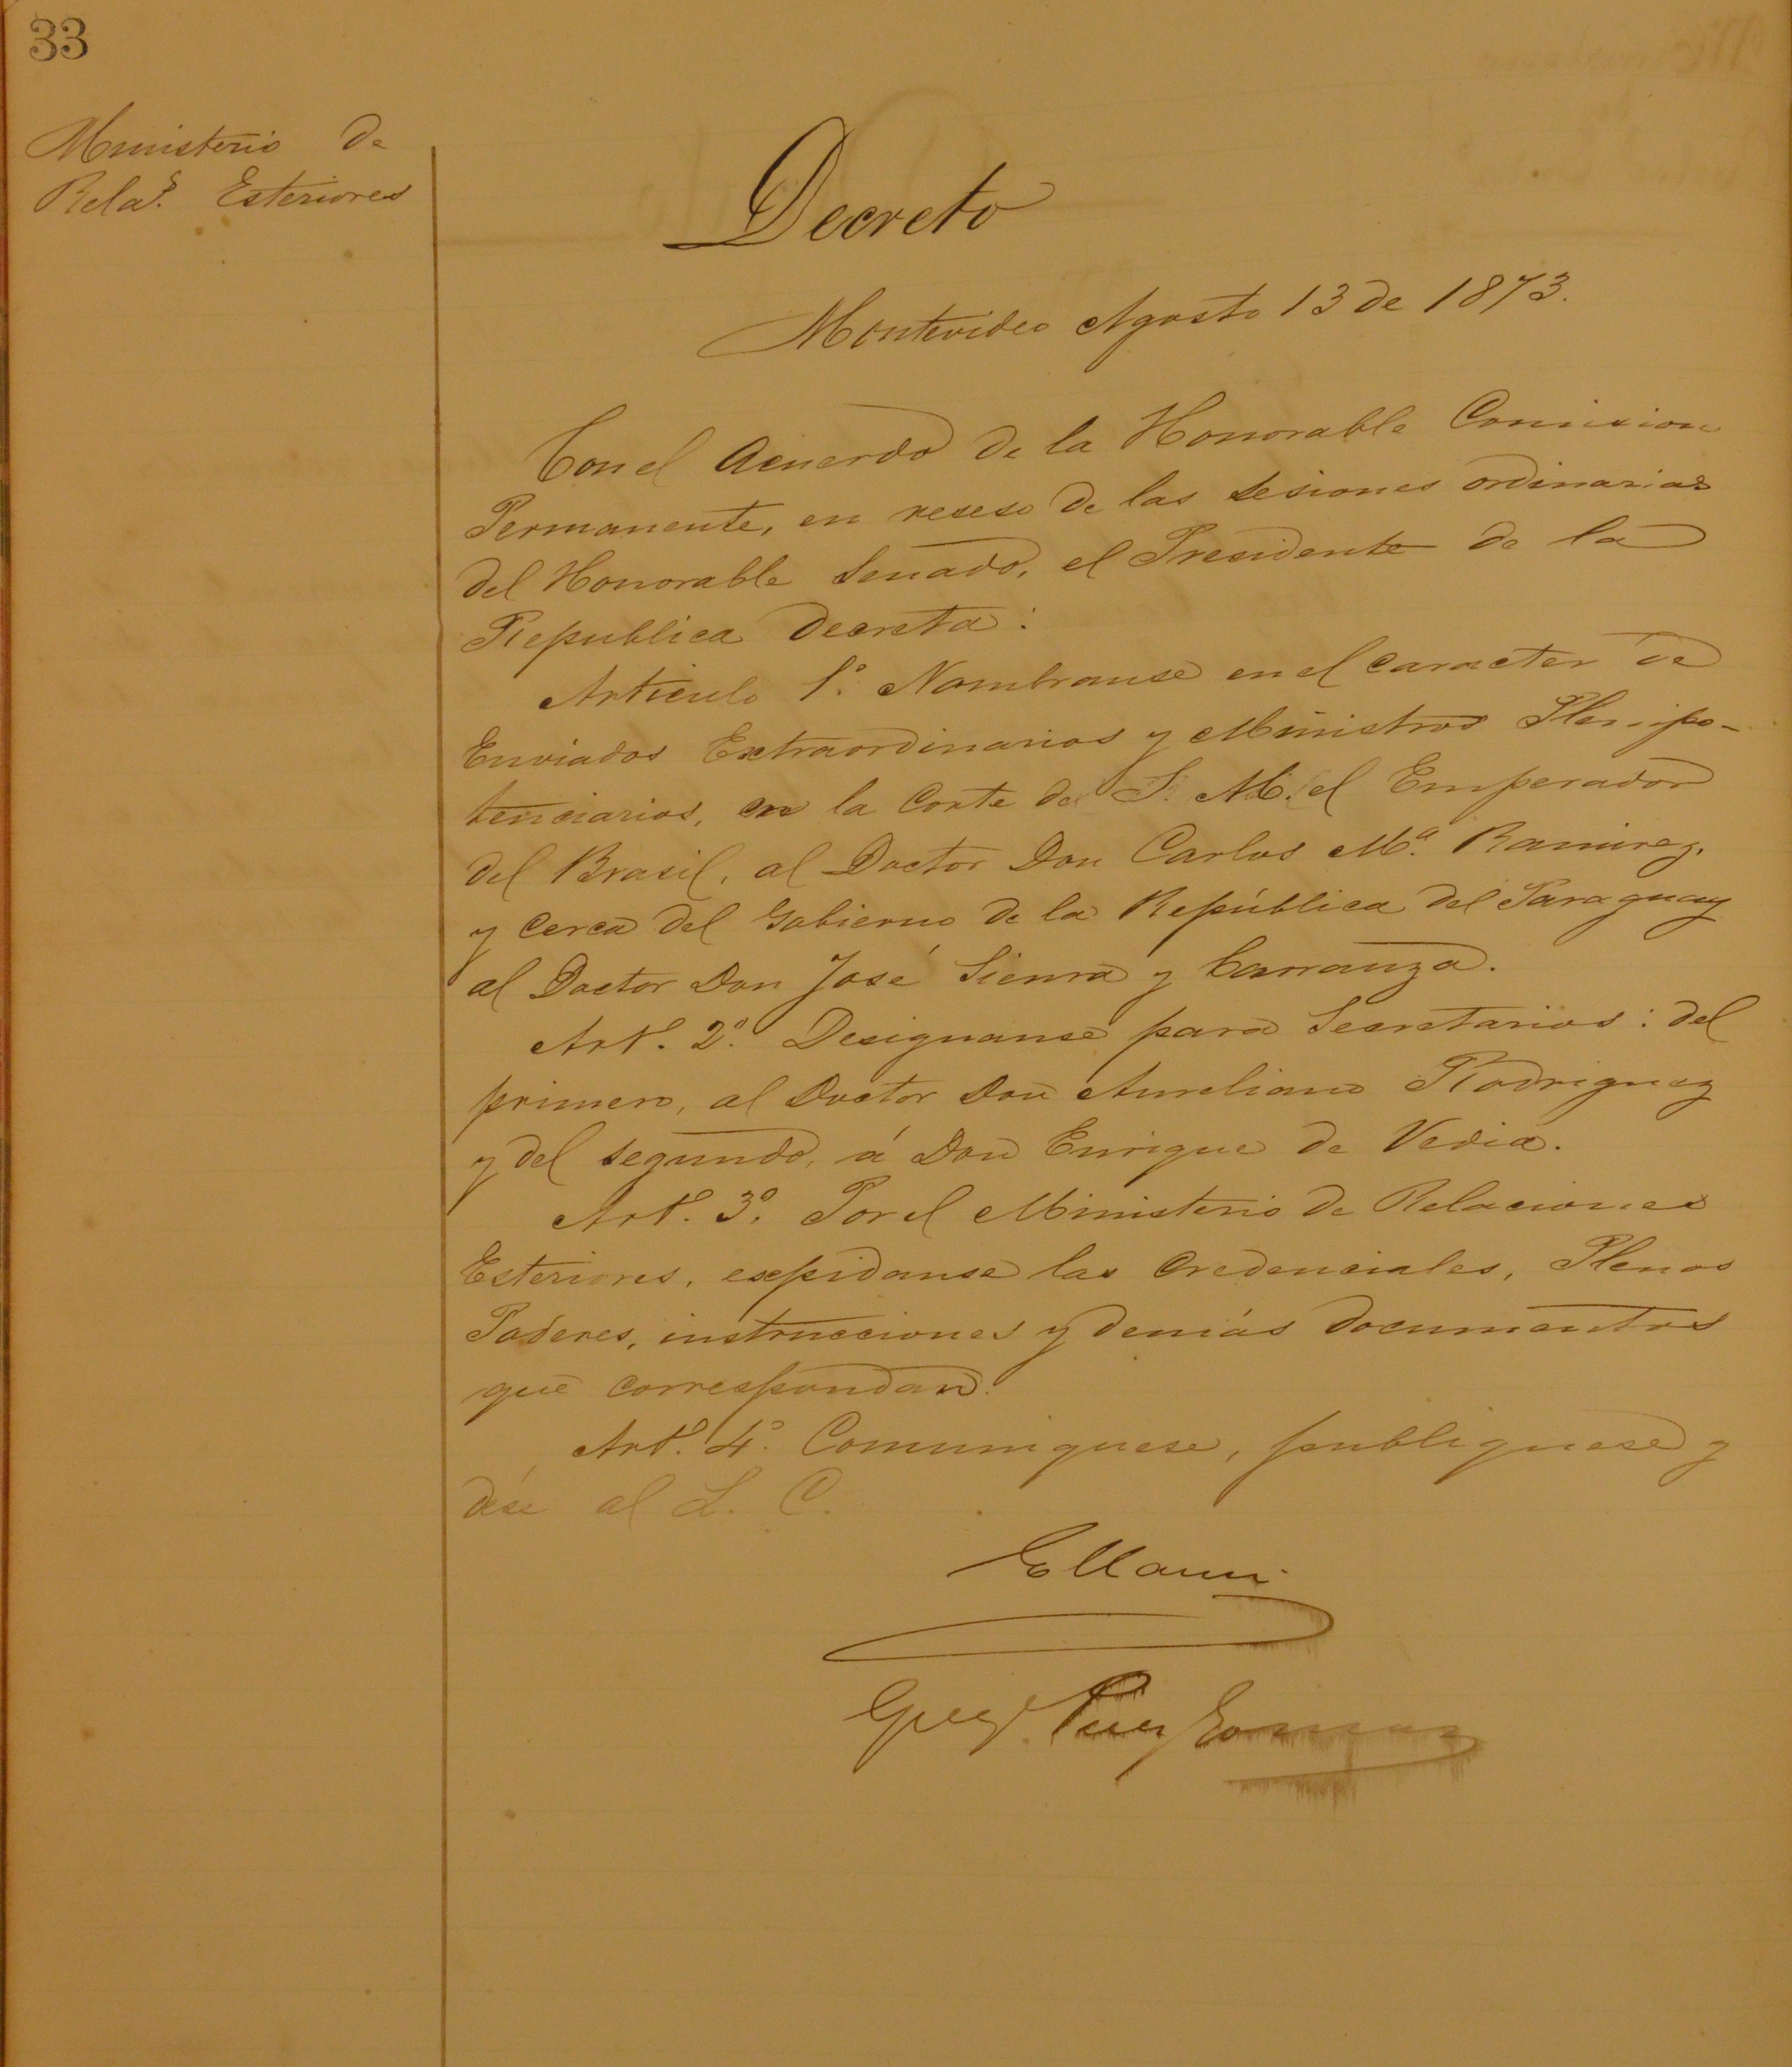 33
Ministerio de
Rela.s Esteriores
Decreto
Montevideo Agosto 13 de 1873.
Con el Acuerdo de la Honorable Comision
Permanente, en reseso de las sesiones ordinarias
del Honorable Senado, el Presidente de la
Republica decreta:
Articulo 1.º Nombranse en el caracter de
Enviados Extraordinarios y Ministros Plenipo-
tenciarios, en la Corte de S. M. el Emperador
del Brasil, al Doctor Don Carlos M.ª Ramirez,
y cerca del Gobierno de la República del Paraguay
al Doctor Don José Sienra y Carranza.
Art.º 2.º Designanse para Secretarios: del
primero, al Doctor Don Aureliano Rodriguez
y del segundo, á Don Enrique de Vedia.
Art.º 3.º Por el Ministerio de Relaciones
Esteriores, expidanse las Credenciales, Plenos
Poderes, instrucciones y demás documentos
que correspondan.
Art.º 4.º Comuniquese, publiquese y
dése al L. C.
Ellauri
Greg.º Perez Gomar